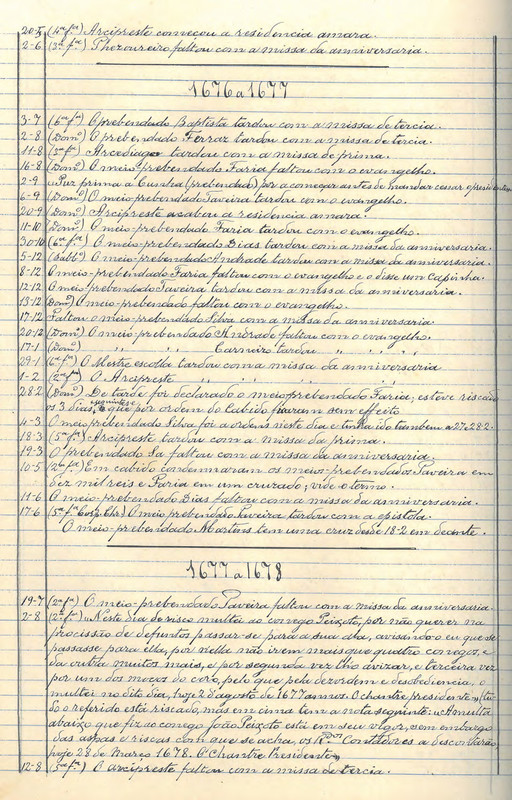 20-5 (4ª fª) Arcipreste começou a residencia amara.
2-6 (3ª fª) Thezoureiro faltou com a missa da anniversaria.
1676 a 1677
3-7 (6ª fª) O prebendado Baptista tardou com a missa de tercia.
2-8 (Domº) O prebendado Ferraz tardou com a missa de tercia
11-8 (3ª fª) Arcediago tardou com a missa de prima.
16-8 (Domº) O meio-prebendado Faria faltou com o evangelho.
2-9 a Cunha (prebendado) por a começar antes de mandar cessar o presidente
6-9 (Domº) O meio-prebendado Taveira tardou com o evangelho.
20-9 (Domº) Arcipreste acabou a residencia amara.
11-10 (Domº) O meio-prebendado Faria tardou com o evangelho.
30-10 (6ª fª) O meio-prebendado Dias tardou com a missa da anniversaria.
5-12 (Sabbº) O meio-prebendado Andrade tardou com a missa da anniversaria.
8-12 O meio-prebendado Faria faltou com o evangelho e o disse um Capinha.
12-12 O meio-prebendado Taveira tardou com a missa da anniversaria.
13-12 (Domº) O meio-prebendado faltou com o evangelho.
17-12 Faltou o meio-prebendado Silva com a missa da anniversaria.
20-12 (Domº) O meio-prebendado Andrade faltou com o evangelho.
17-1 (Domº) " " " Carneiro tardou " " "
29-1 (6ª fª) O Mestre escolla tardou com a missa da anniversaria
1-2 (2ª fª) O Arcipreste " " " " "
28-2 (Domº) De tarde foi declarado o meio prebendado Faria; esteve riscado
os 3 dias seguintes e que por ordem do Cabido ficaram sem effeito
4-3 O meio prebendado Silva foi a ordens neste dia e tinha ido tambem a 27 e 28-2.
18-3 (5ª fª) Arcipreste tardou com a missa da prima.
19-3 O prebendado Sa faltou com a missa da anniversaria;
10-5 (2ª fª) Em cabido condemnaram os meios-prebendado Taveira em
dez mil reis e Faria em um cruzado; vide o termo.
11-6 O meio-prebendado Dias faltou com a missa da anniversaria.
17-6 (5ª fª Corp. Chr.) O meio prebendado Taveira tardou com a epistola.
O meio-prebendado Martins tem uma cruz desde 18-2 em deante.
1677 a 1678
19-7 (2ª fª) O meio-prebendado Taveira faltou com a missa da anniversaria.
2-8 (2ª fª) Neste dia de risco multei ao conego Peixoto, por não querer na
procissão de defuntos passar-se para a sua ala, avisando-o eu que se
passasse para ella, por nella não irem mais que quatro conegos, e
da outra muitos mais, e por segunda vez lho avizar, e terceira vez
por um dos moços do coro, pelo que pela dezordem e desobediencia, o
multei no dito dia, hoje 2 d'agosto de 1677 annos. O chantre presidente,, (tu-
do o referido está riscado, mas em cima tem a nota seguinte: "A multa
abaixo que fiz ao conego João Peixoto está em seu vigor, sem embargo
das aspas e riscas com que se acha, os Rdos Contadores a descontarão,
hoje 28 de Março 1678. O Chantre Presidente,,
12-8 (5ª fª) O arcipreste faltou com a missa de tercia.